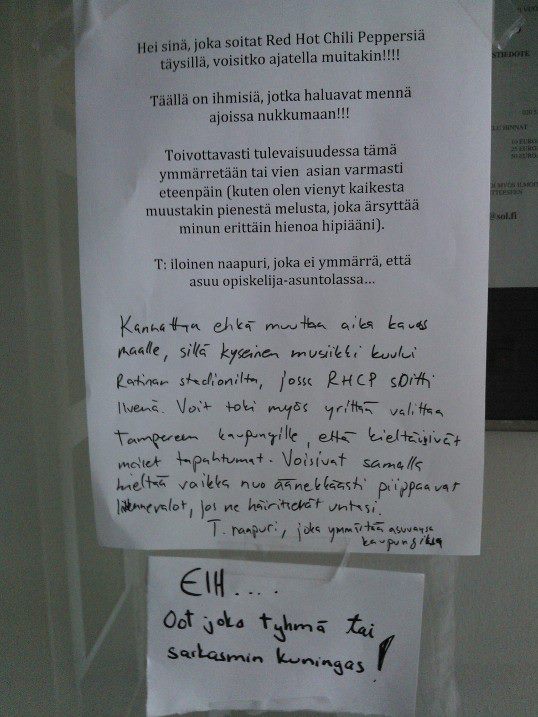 Hei sinä, joka soitat Red Hot Chili Peppersiä
täysillä, voisitko ajatella muitakin!!!!
Täällä on ihmisiä, jotka haluavat mennä
ajoissa nukkumaan!!!
Toivottavasti tulevaisuudessa tämä
ymmärretään tai vien asian varmasti
eteenpäin (kuten olen vienyt kaikesta
muustakin pienestä melusta, joka ärsyttää
minun erittäin hienoa hipiääni).
T: iloinen naapuri, joka ei ymmärrä, että
asuu opiskelija-asuntolassa...
Kannattaa ehkä muuttaa aika kauas
maalle, sillä kyseinen musiikki kuului
Ratinan stadionilta, jossa RHCP soitti
livenä. Voit toki myös yrittää valittaa
Tampereen kaupungille, että kieltäisivät
moiset tapahtumat. Voisivat samalla
kieltää vaikka nuo äänekkäästi piippaavat
liikennevalot, jos ne häiritsevät untasi.
T. naapuri, joka ymmärtää asuvansa
kaupungissa
EIH....
Oot joko tyhmä tai
sarkasmin kuningas!
TIEDOTE
HINNAT
10 EURO
25 EURO
50 EURO
@sol.fi